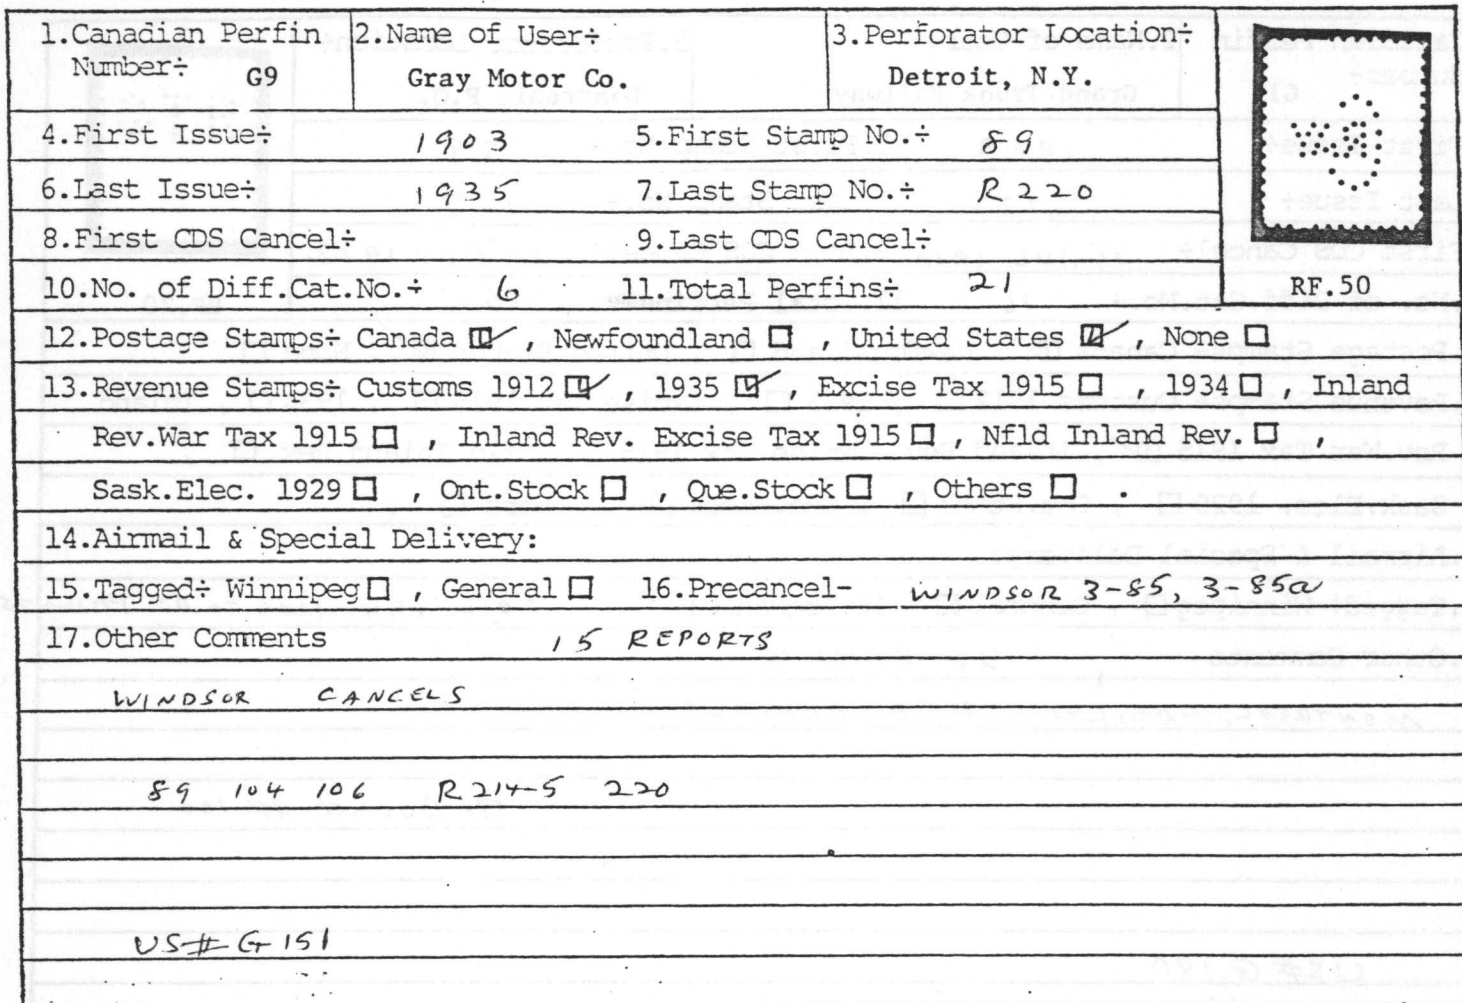 1.Canadian Perfin 2.Name of User÷ 3.Perforator Location÷
Number÷ G9 Gray Motor Co. Detroit, N.Y.
4.First Issue÷ 1903 5.First Stamp No.÷ 89
6.Last Issue÷ 1935 7.Last Stamp No.÷ R220
8.First CDS Cancel÷ 9.Last CDS Cancel÷
10.No. of Diff.Cat.No.÷ 6 11.Total Perfins÷ 21 RF.50
12.Postage Stamps÷ Canada ☑ , Newfoundland ☐ , United States ☑ , None ☐
13.Revenue Stamps÷ Customs 1912 ☑ , 1935 ☑ , Excise Tax 1915 ☐ , 1934 ☐ , Inland
Rev.War Tax 1915 ☐ , Inland Rev. Excise Tax 1915 ☐ , Nfld Inland Rev. ☐ ,
Sask.Elec. 1929 ☐ , Ont.Stock ☐ , Que.Stock ☐ , Others ☐ .
14.Airmail & Special Delivery:
15.Tagged÷ Winnipeg ☐ , General ☐ 16.Precancel- WINDSOR 3-85, 3-85a
17.Other Comments 15 REPORTS
WINDSOR CANCELS
89 104 106 R214-5 220
US# G151